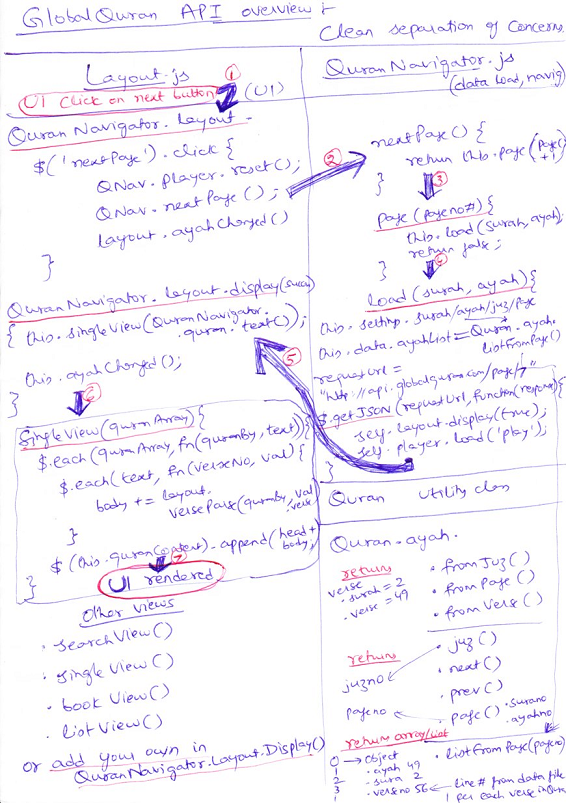 GlobalQuran API overview :-
Clean separation of Concerns.
Layout.js
UI click on next button
1
(UI)
QuranNavigator.layout -
$('nextPage').click {
QNav.player.reset();
QNav.nextPage();
layout.ayahChanged()
}
QuranNavigator.layout.display(
{ this.singleView(QuranNavigator.
quran.text());
this.ayahChanged();
}
6
SingleView(quranArray){
$.each(quranArray, fn(quranBy, text){
$.each(text, fn(verseNo, val){
body += layout.
verseParse(quranby, val
verse
}
$(this.quranContext).append(head+
body;
}
7
UI rendered
Other views
• searchView()
• singleView()
• bookView()
• listView()
or add your own in
QuranNavigator.Layout.Display()
QuranNavigator.js
(data load, navig)
nextPage() {
return this.page(page()
+1)
}
2
3
page(pageno#){
this.load(surah, ayah);
return false;
}
4
load(surah, ayah){
this.setting.surah/ayah/juz/page
this.data.ayahList ← Quran.ayah.
listFromPage()
requestUrl =
"http://api.globalquran.com/page/7"
$.getJSON(requestUrl, function(response){
self.layout.display(true);
self.player.load('play');
}
5
Quran utility class
Quran.ayah.
returns
verse
.surah = 2
.verse = 49
• fromJuz()
• fromPage()
• fromVerse()
returns
juzno
pageno
• juz()
• next()
• prev()
• page()
.surano
.ayahno
return array/list
• listFromPage(pageno)
0 → object
1 .ayah 49
2 .sura 2
3 .verseno 56 ← line# from data file
1 per each verse in Quran